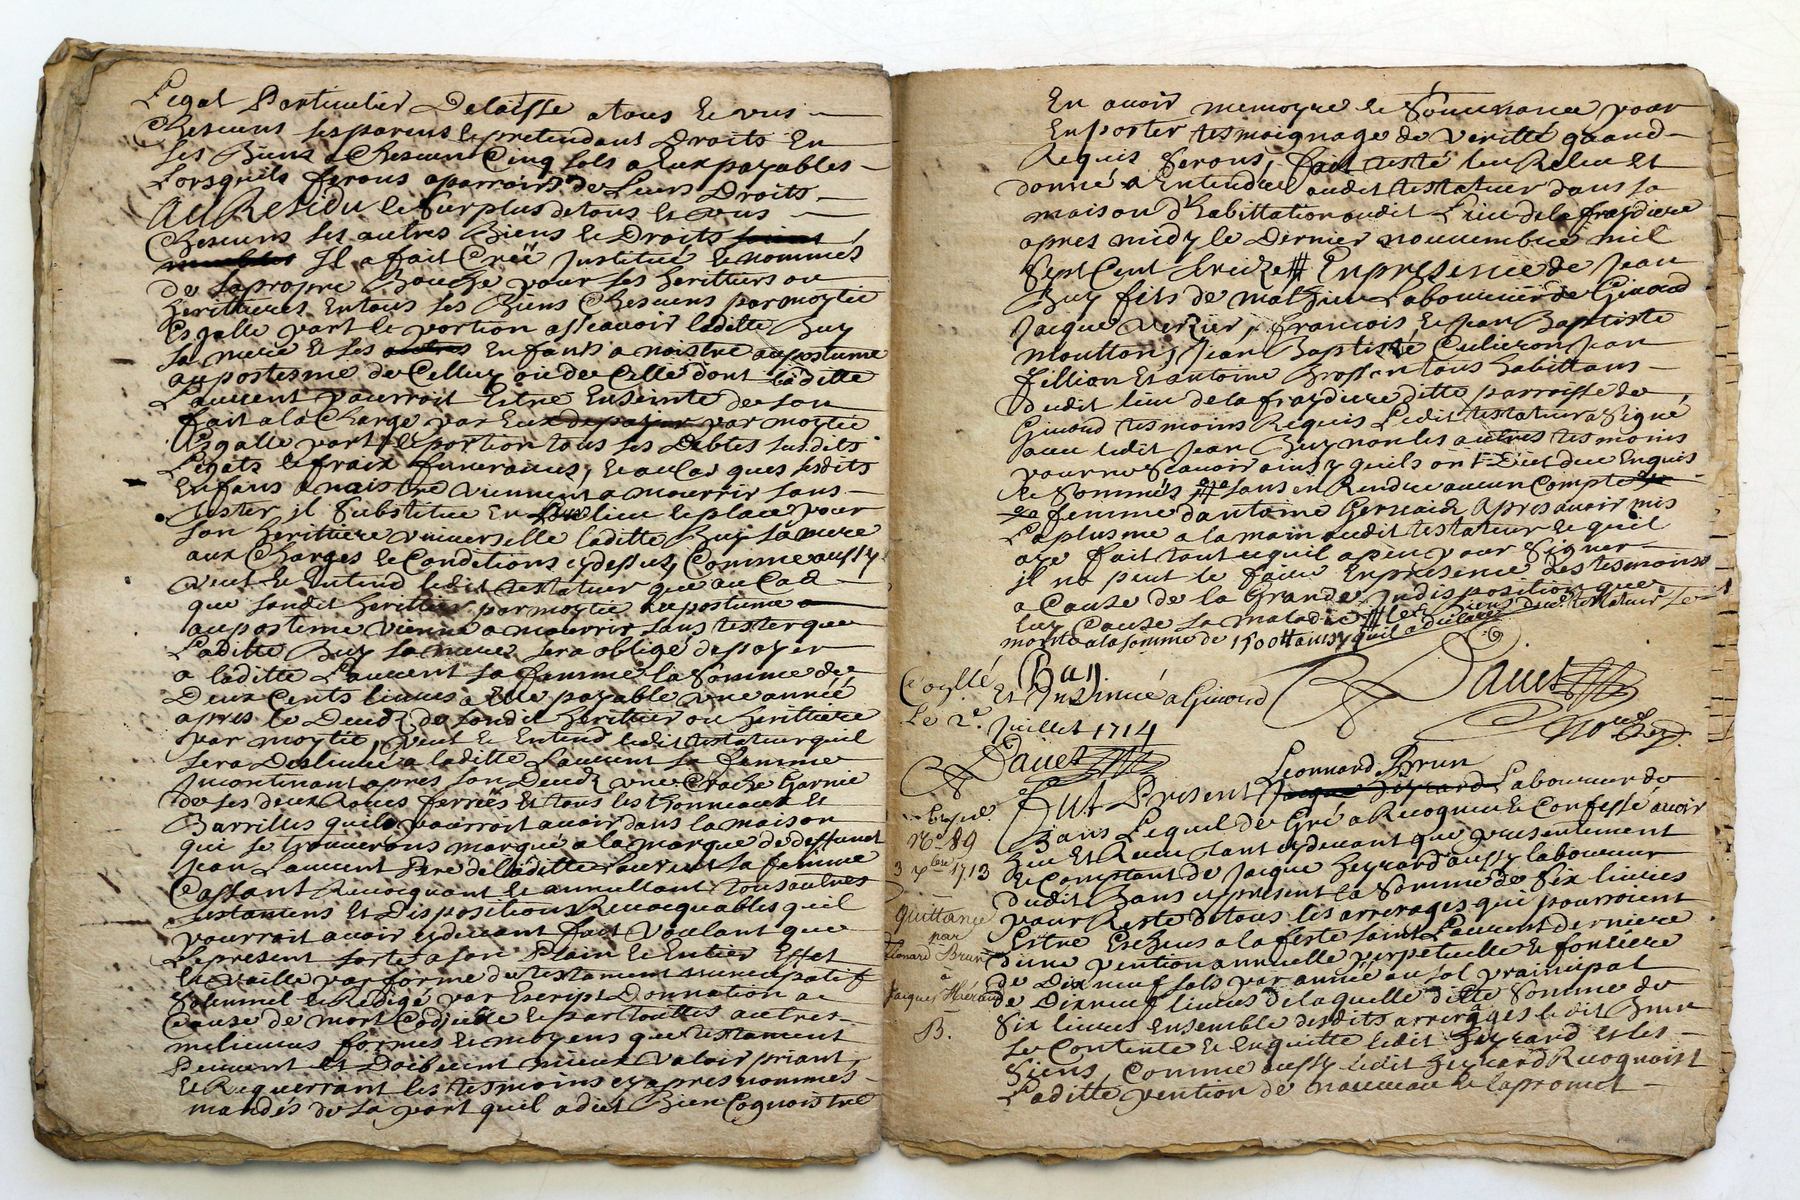 Legat Particulier Delaisse a tous & vns
Chescuns ses parens & pretendant Droits En
ses Biens a Chescun Cinq sols a Eux payables
Lorsquils feront aparroir de Leurs Droits
Au Residu & surplus de tous & vns
Chescuns ses autres Biens & Droits
Il a fait Créé Institué & nommés
de sa propre Bouche pour ses heritiers ou
heritieres En tous ses Biens Chescuns par moytie
Esgalle part & portion assauoir laditte Buy
sa mere Et ses Enfants a naistre au postume
au postesme de Celluy ou de Celle dont laditte
Laurent pourroit Estre Enseinte de son
fait a la Charge par Eux par moytie
Esgalle part & portion tous ses Debtes susdits
Legats & fraix funeraires, & au Cas que sesdits
Enfans a naistre viennent a mourrir sans
tester il substitue En lieu & place pour
son heritiere vniuerselle laditte Buy sa mere
aux Charges & Conditions cy dessus, Comme aussy
veut & Entend ledit testateur que au Cas
que sondit heritier par moytie au postume
au posteme vienne a mourrir sans tester que
Laditte Buy sa mere sera obligé de payer
a laditte Laurent sa femme la somme de
Deux Cents liures a Elle payable vne année
apres le Deced de sondit heritier ou heritiere
par moytie, veut & Entend ledit testateur quil
sera Desliuré a laditte Laurent sa femme
Incontinant apres son Deced vne Garnie
de ses deux Roues ferrées Et tous les Thonneaux Et
Barrilles quil pourroit auoir dans la maison
qui se trouuerons marqué a la marque de deffunct
Jean Laurent Pere de laditte Laurent sa femme
Cassant Reuocquant & annullant tous autres
testamens Et Dispositions Reuocquables quil
pourrait auoir cy deuant fait Voulant que
Le present sorte a son Plain & Entier Effet
Et vaille par forme de testament nuncupatif
Solemnel & Redigé par Escript Donnation a
Cause de mort Codicille & par touttes autres
melieures formes & moyens que testament
Peuuent Et Doibuent mieux valoir priant
& Requerrant les tesmoins cy apres nommés
mandés de sa part quil a diet Bien Cognoistre
En auoir memoyre & Souuenance pour
En porter tesmoignage de verité quand
Requis Serons, fait testé leu Releu Et
donné a Entendre audit testateur dans sa
maison d'habittation audit Lieu de la fraydiere
apres midy le Dernier nouuembre mil
Sept Cent treize En presence de Jean
Buy fils de mathieu Laboureur de Giuord
Jacque Verzier, francois & Jean Baptiste
moutton, Jean Baptiste Culieron Jean
fillion Et antoine Brosson tous habittans
dudit lieu de la fraydiere ditte parroisse de
Giuord tesmoins Requis Ledit testateur a signé
auec ledit Jean Buy non les autres tesmoins
pour ne scauoir ainsy quils ont Diet deue Enquis
& Sommés sans en Rendre aucun Compte
sa femme dantoine Geruaix Apres auoir mis
la plusme a la main audit testateur & quil
aye fait tout ce quil a peu pour signer
il na peut le faire En presence des tesmoins
a Cause de la Grande Indisposition que
luy Cause sa maladie les biens duct testateur se
monte a la somme de 1500 ll ainsy quil a declaré
Buy
Dauet
Not Roy.
Coyllé
Et Insinué a Giuord
Le 2e
Juillet 1714
Dauet
No 89
3 xbre 1713
quittance
par
Leonard Brun
a
Jacques Héraud
B.
Leonnard Brun
Fut Present Laboureur de
Bans Lequel de Gré a Recogneu & Confessé auoir
heu Et Receu tant cy deuant que presentement
& Comptant de Jacque heyraud aussy laboureur
dudit Bans cy present la Somme de Six liures
pour Reste de tous les arrerages qui pourroient
Estre Escheus a la feste saint Laurent derniere
d'une pention annuelle perpetuelle & fonciere
de Dixneuf sols par année au sol principal
de Dixneuf liures de laquelle ditte Somme de
Six liures Ensemble desdits arrerages ledit Brun
se Contente & En quitte ledit heyraud Et les
Siens, Comme aussy ledit heyraud Recognoist
Laditte pention de nouueau & la promet